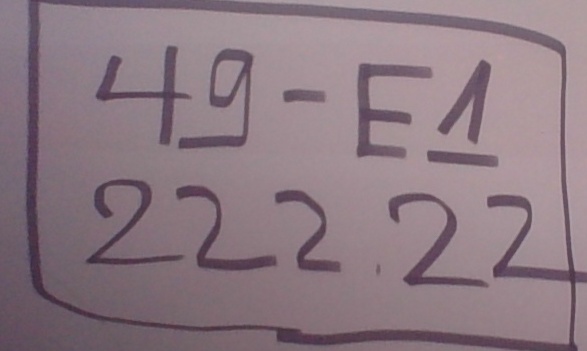 49-E1
222.22